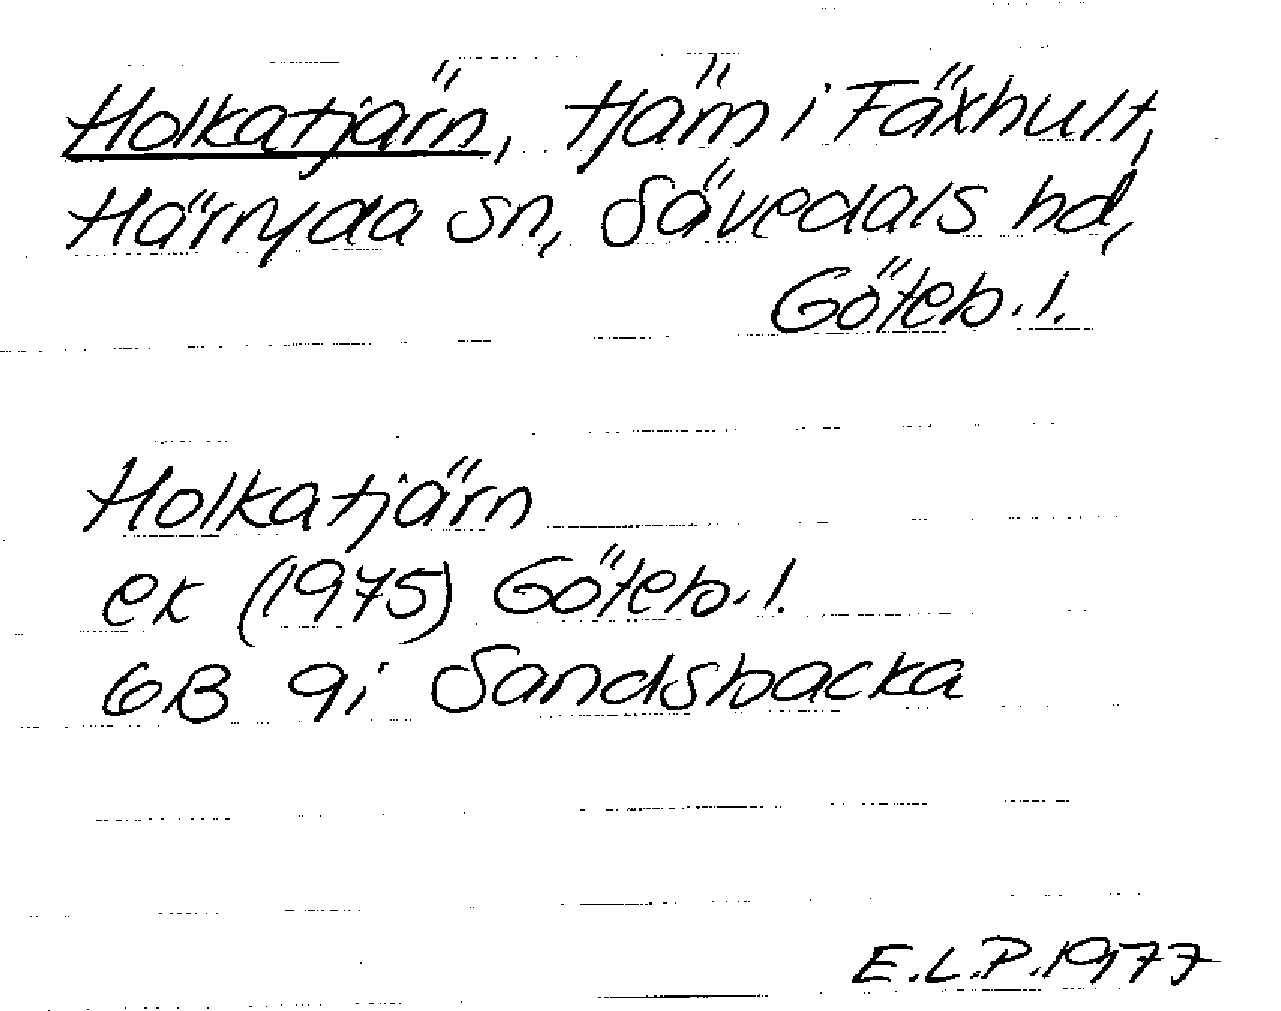 Holkatjärn, tjärn i Fäxhult,
Härryda sn, Sävedals hd,
Göteb. l.
Holkatjärn
ek (1975) Göteb. l.
6B 9i Sandsbacka
E.L.P. 1977